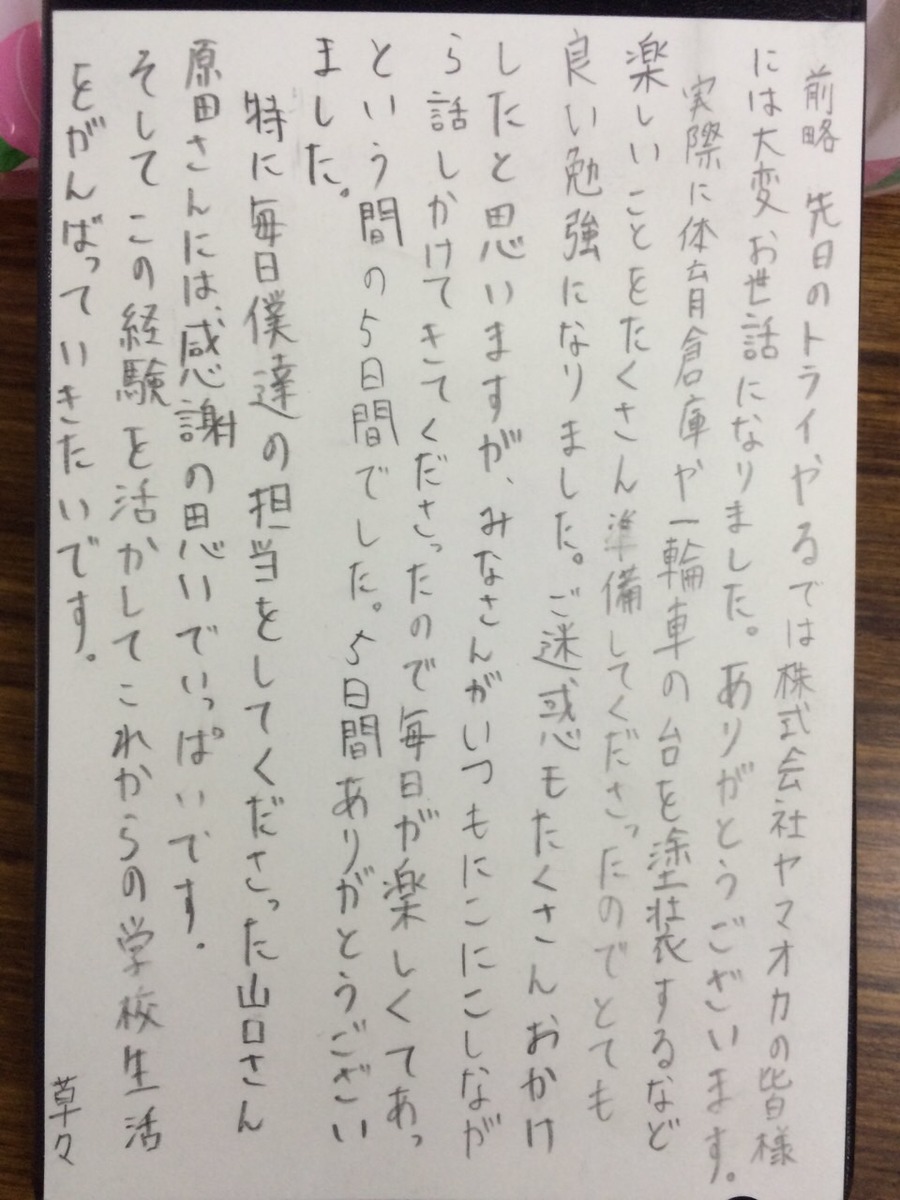 前略　先日のトライやるでは株式会社ヤマオカの皆様
には大変お世話になりました。ありがとうございます。
実際に体育倉庫や一輪車の台を塗装するなど
楽しいことをたくさん準備してくださったのでとても
良い勉強になりました。ご迷惑もたくさんおかけ
したと思いますが、みなさんがいつもにこにこしなが
ら話しかけてきてくださったので毎日が楽しくてあっ
という間の5日間でした。5日間ありがとうござい
ました。
特に毎日僕達の担当をしてくださった山口さん
原田さんには、感謝の思いでいっぱいです。
そしてこの経験を活かしてこれからの学校生活
をがんばっていきたいです。
草々